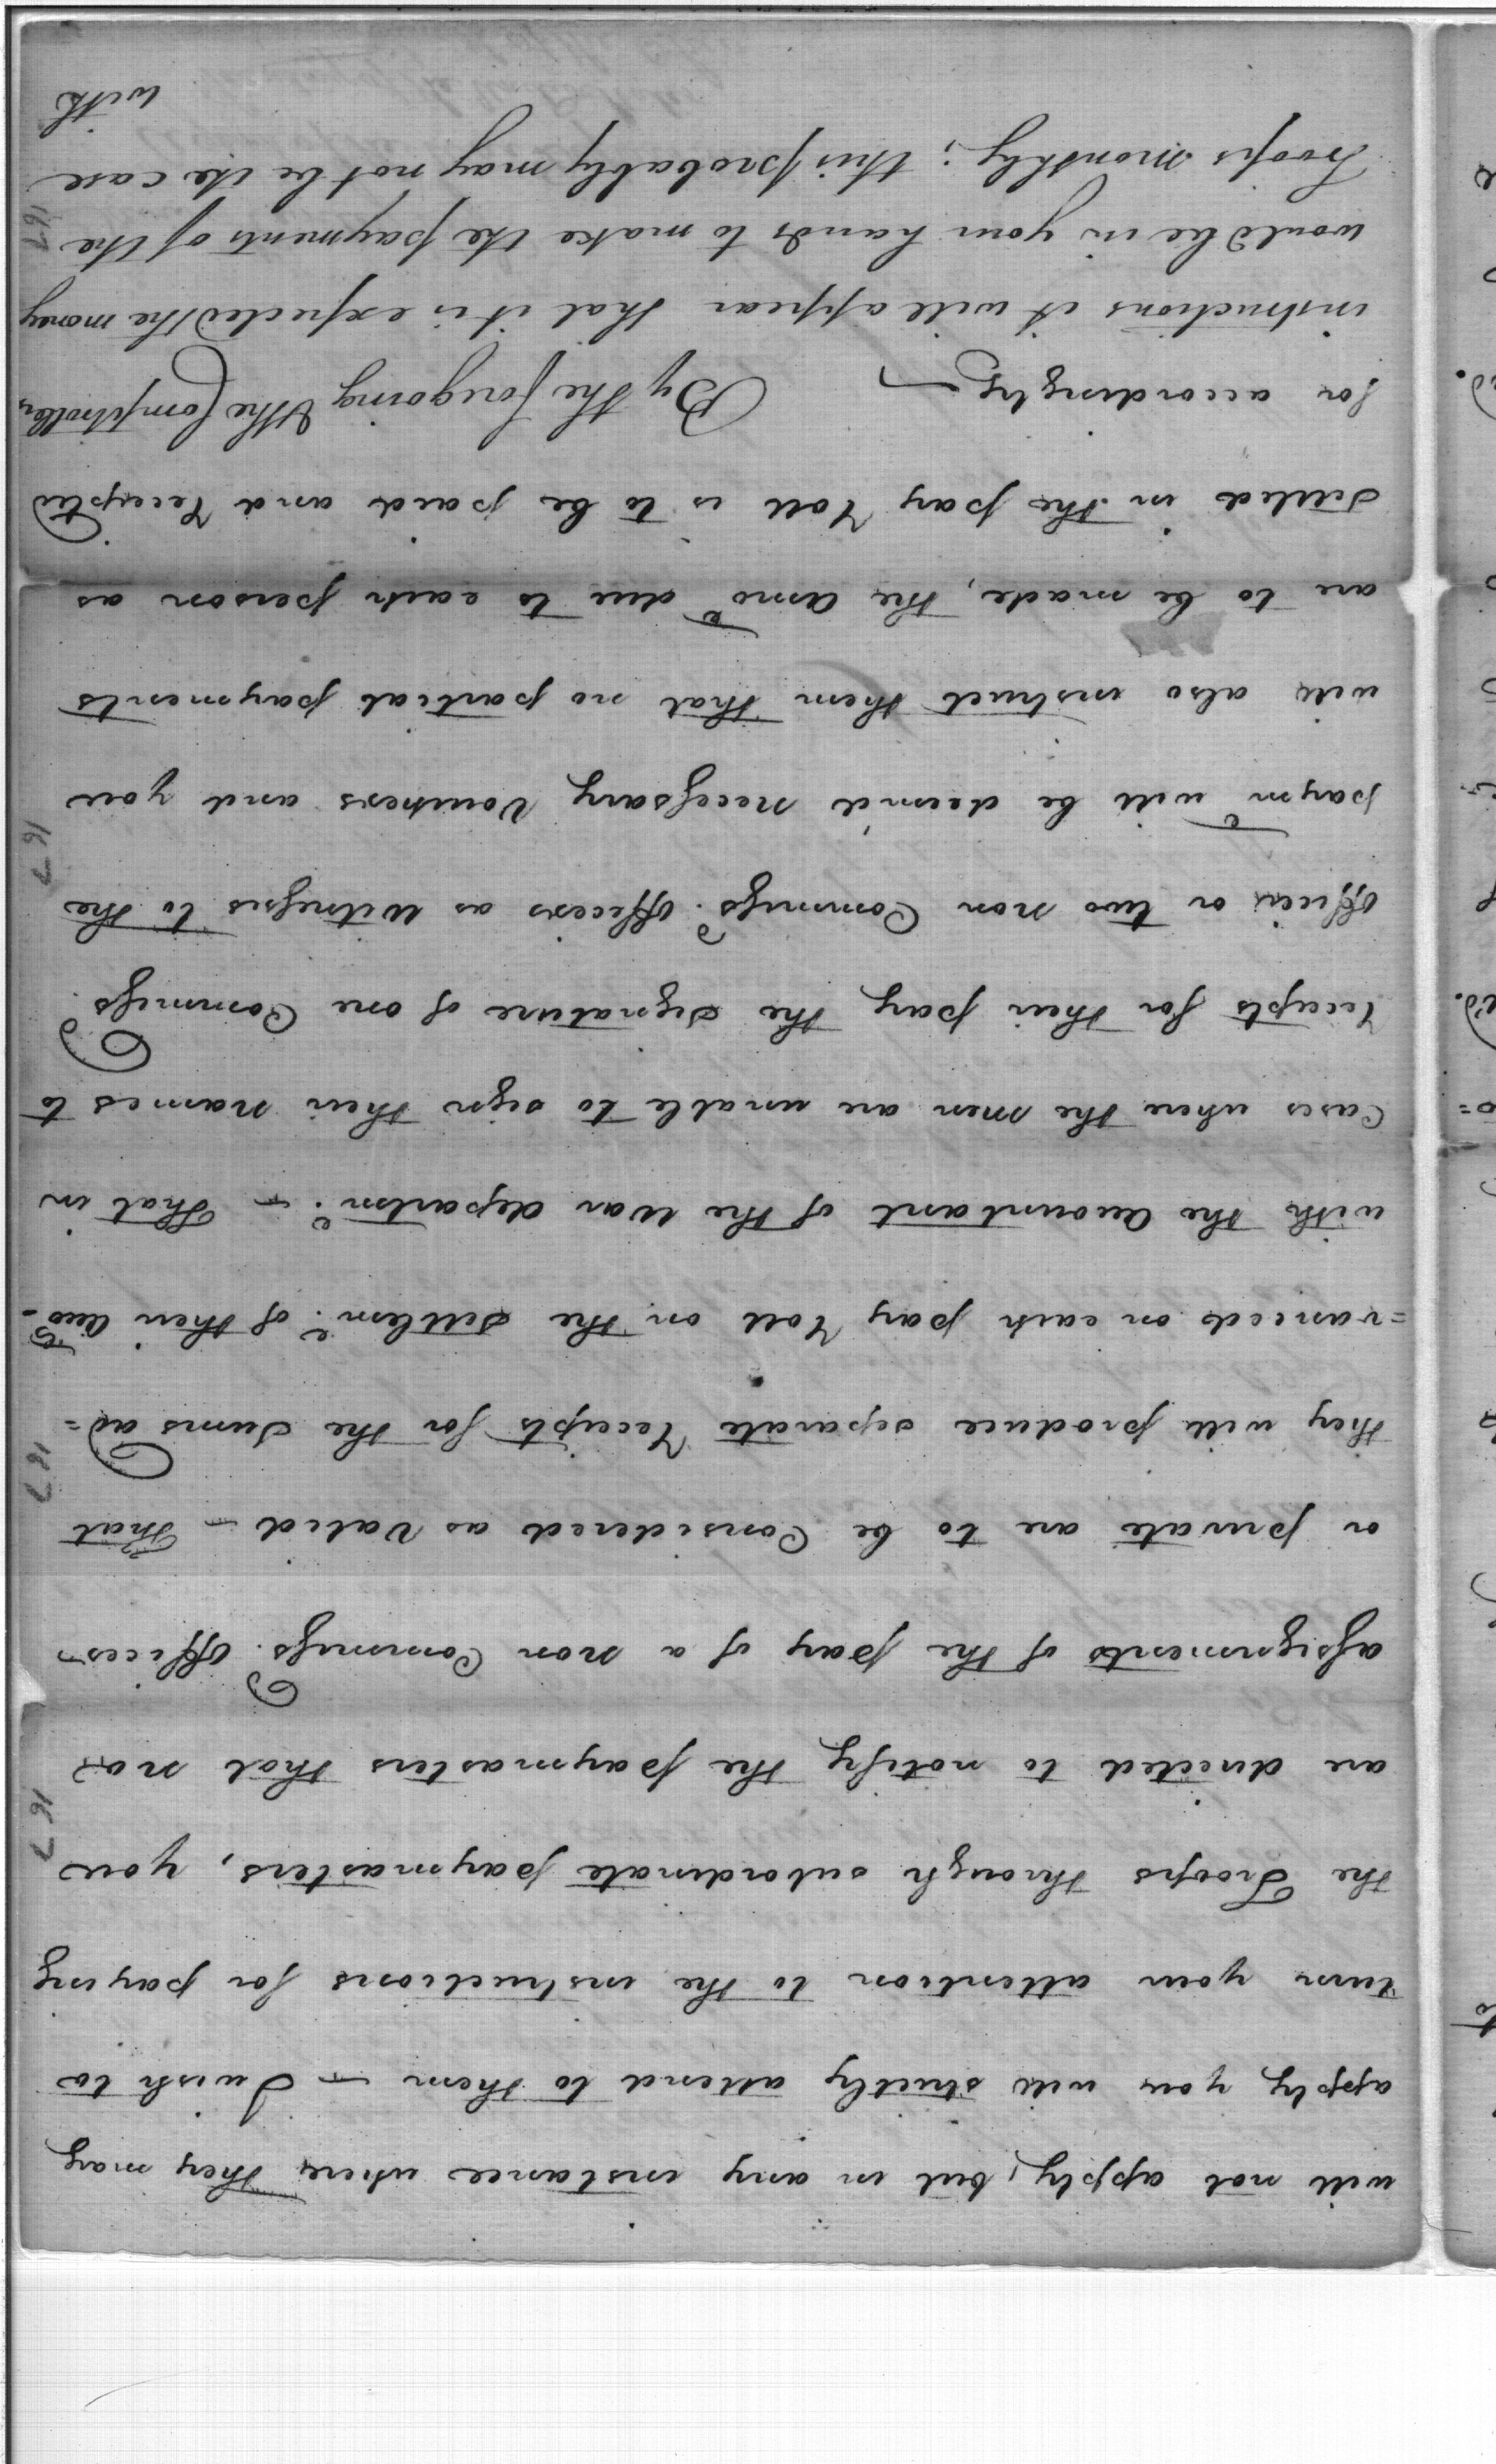 will not apply, but in any instance where they may
apply you will strictly attend to them – I wish to
turn your attention to the instructions for paying
the Troops through subordinate paymasters, you
are directed to notify the paymasters that no
assignments of the pay of a non Commissd. officer
or private are to be Considered as Valid – That
they will produce separate receipts for the sums ad=
=vanced on each pay roll on the settlemt. of their accots.
with the accountant of the war departmt. – That in
Cases where the men are unable to sign their names to
receipts for their pay the signature of one Commissd.
officer or two non Commissd. officers as witnesses to the
paymt will be deem'd necessary Vouchers and you
will also instruct them that no partial payments
are to be made, the amot due to each person as
settled in the pay roll is to be paid and receipted
for accordingly – By the foregoing & the Comptrollers
instructions it will appear that it is expected the money
would be in your hands to make the payments of the
Troops monthly; this probably may not be the case
with
167
167
167
167